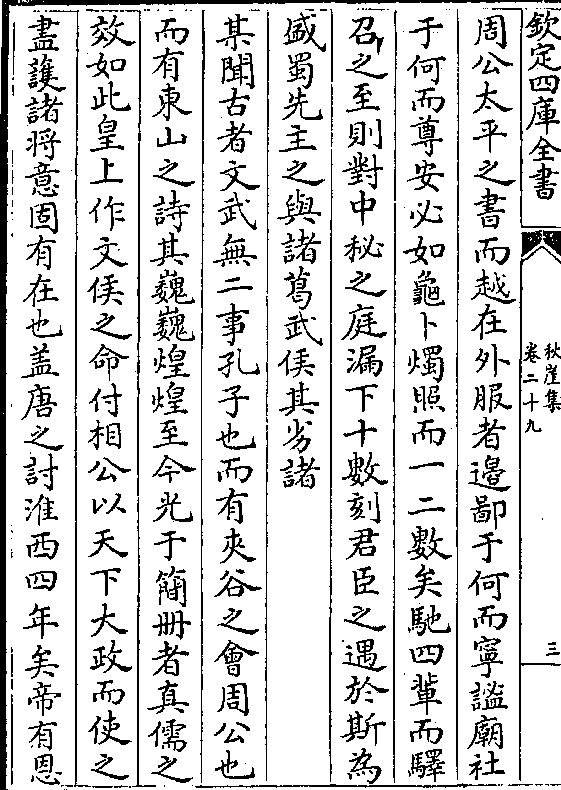 欽定四庫全書
秋崖集
卷二十九
三
周公太平之書而越在外服者邉鄙于何而寧謐廟社
于何而尊安必如龜卜燭照而一二數矣馳四軰而驛
召之至則對中秘之庭漏下十數刻君臣之遇於斯為
盛蜀先主之與諸葛武侯其劣諸
某聞古者文武無二事孔子也而有夾谷之會周公也
而有東山之詩其巍巍煌煌至今光于簡册者真儒之
效如此皇上作文侯之命付相公以天下大政而使之
盡䕶諸将意固有在也盖唐之討淮西四年矣帝有恩